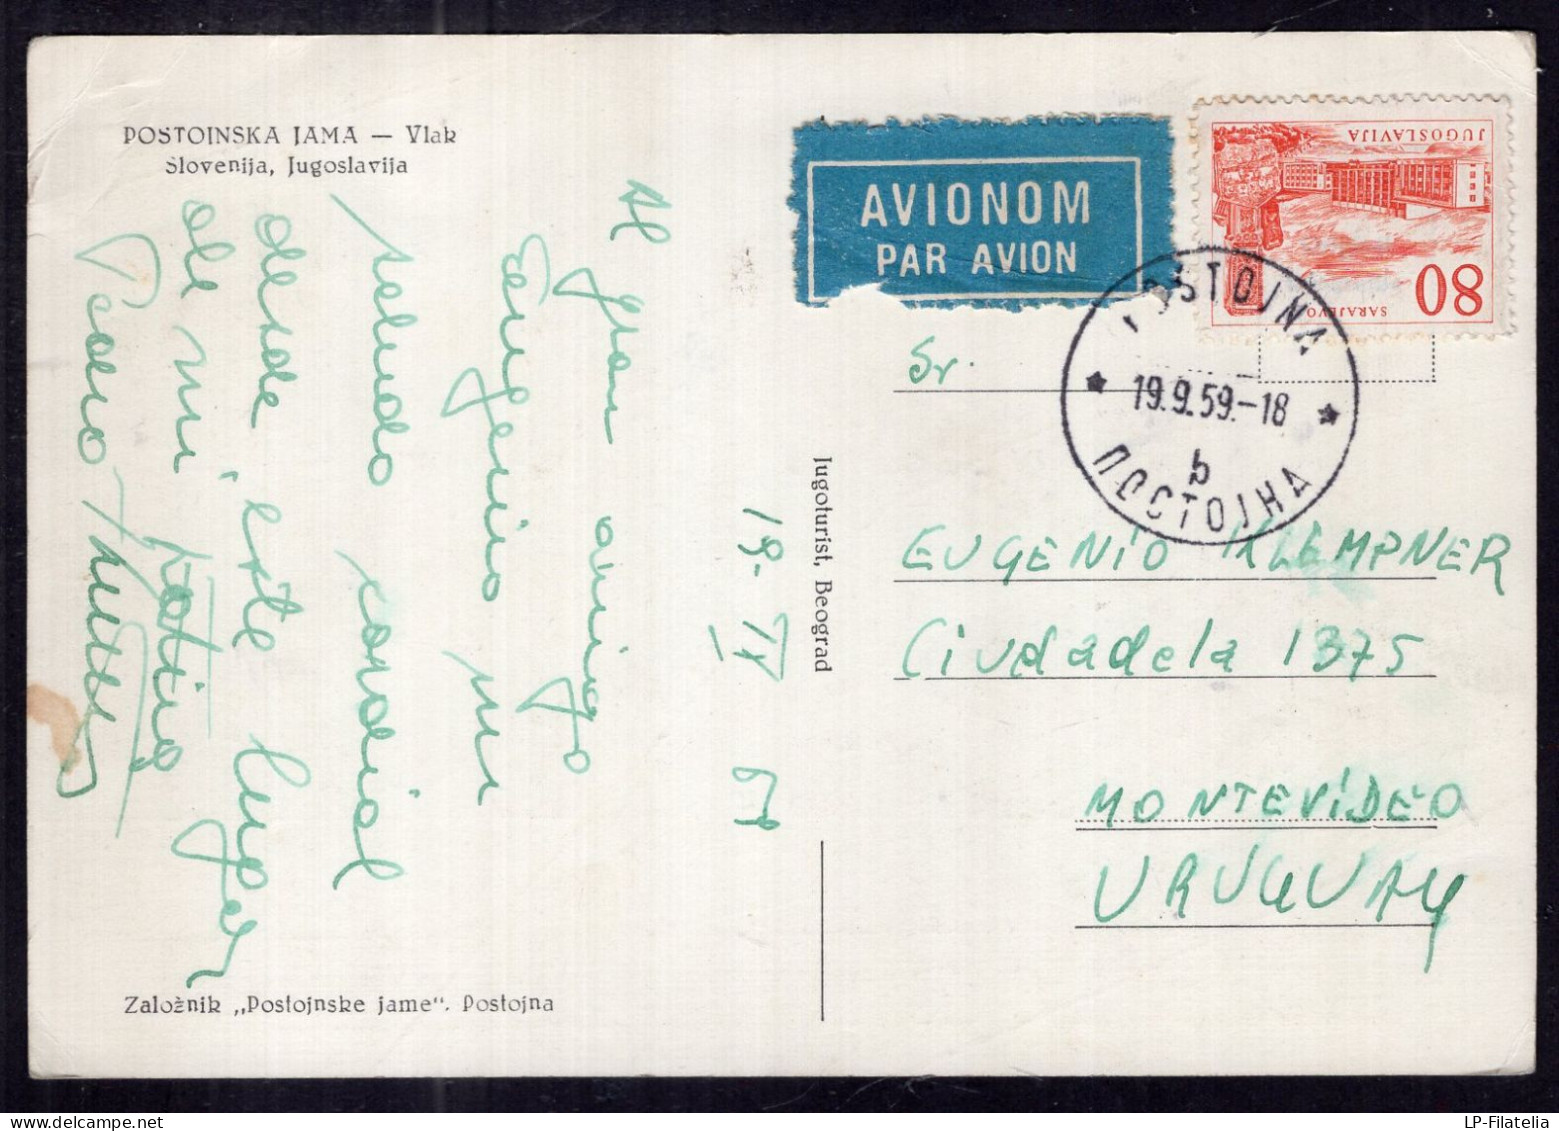 POSTOJNSKA JAMA — Vlak
Slovenija, Jugoslavija
19. IX 59
Al gran amigo
Eugenio mi
saludo cordial
desde este lugar
de mi patria
Založnik „Postojnske jame“. Postojna
Jugoturist, Beograd
AVIONOM
PAR AVION
JUGOSLAVIJA
SARAJEVO
80
POSTOJNA
19.9.59.-18
b
ПОСТОЈНА
Sr.
EUGENIO KLEMPNER
Ciudadela 1375
MONTEVIDEO
URUGUAY
LP-Filatelia